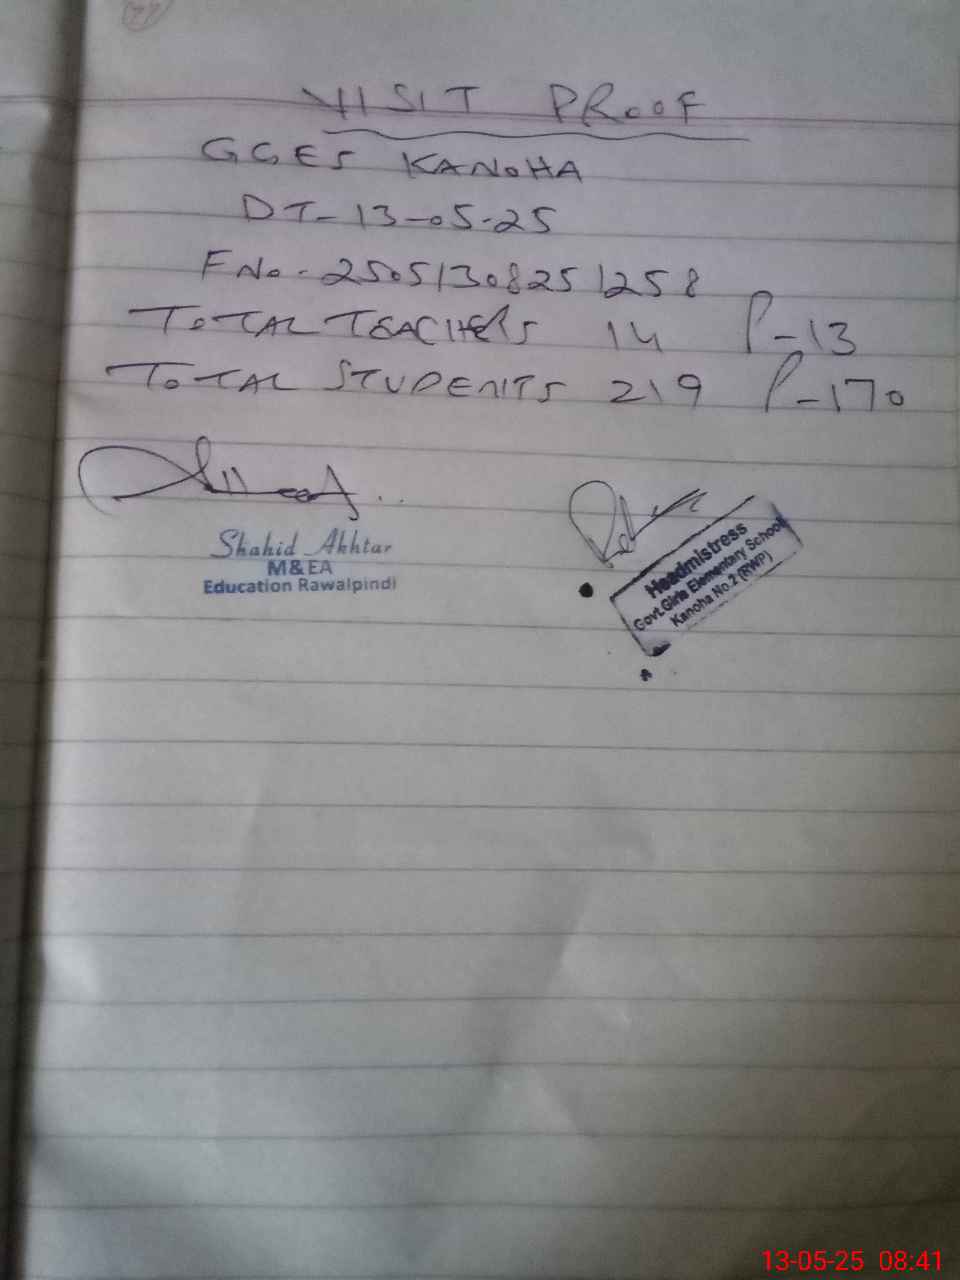 VISIT PROOF
GGES KANOHA
DT-13-05-25
F No. 25051308251258
TOTAL TEACHERS 14 P-13
TOTAL STUDENTS 219 P-170
Shahid Akhtar
M&EA
Education Rawalpindi
Headmistress
Govt.Girls Elementary School
Kanoha No.2 (RWP)
13-05-25 08:41